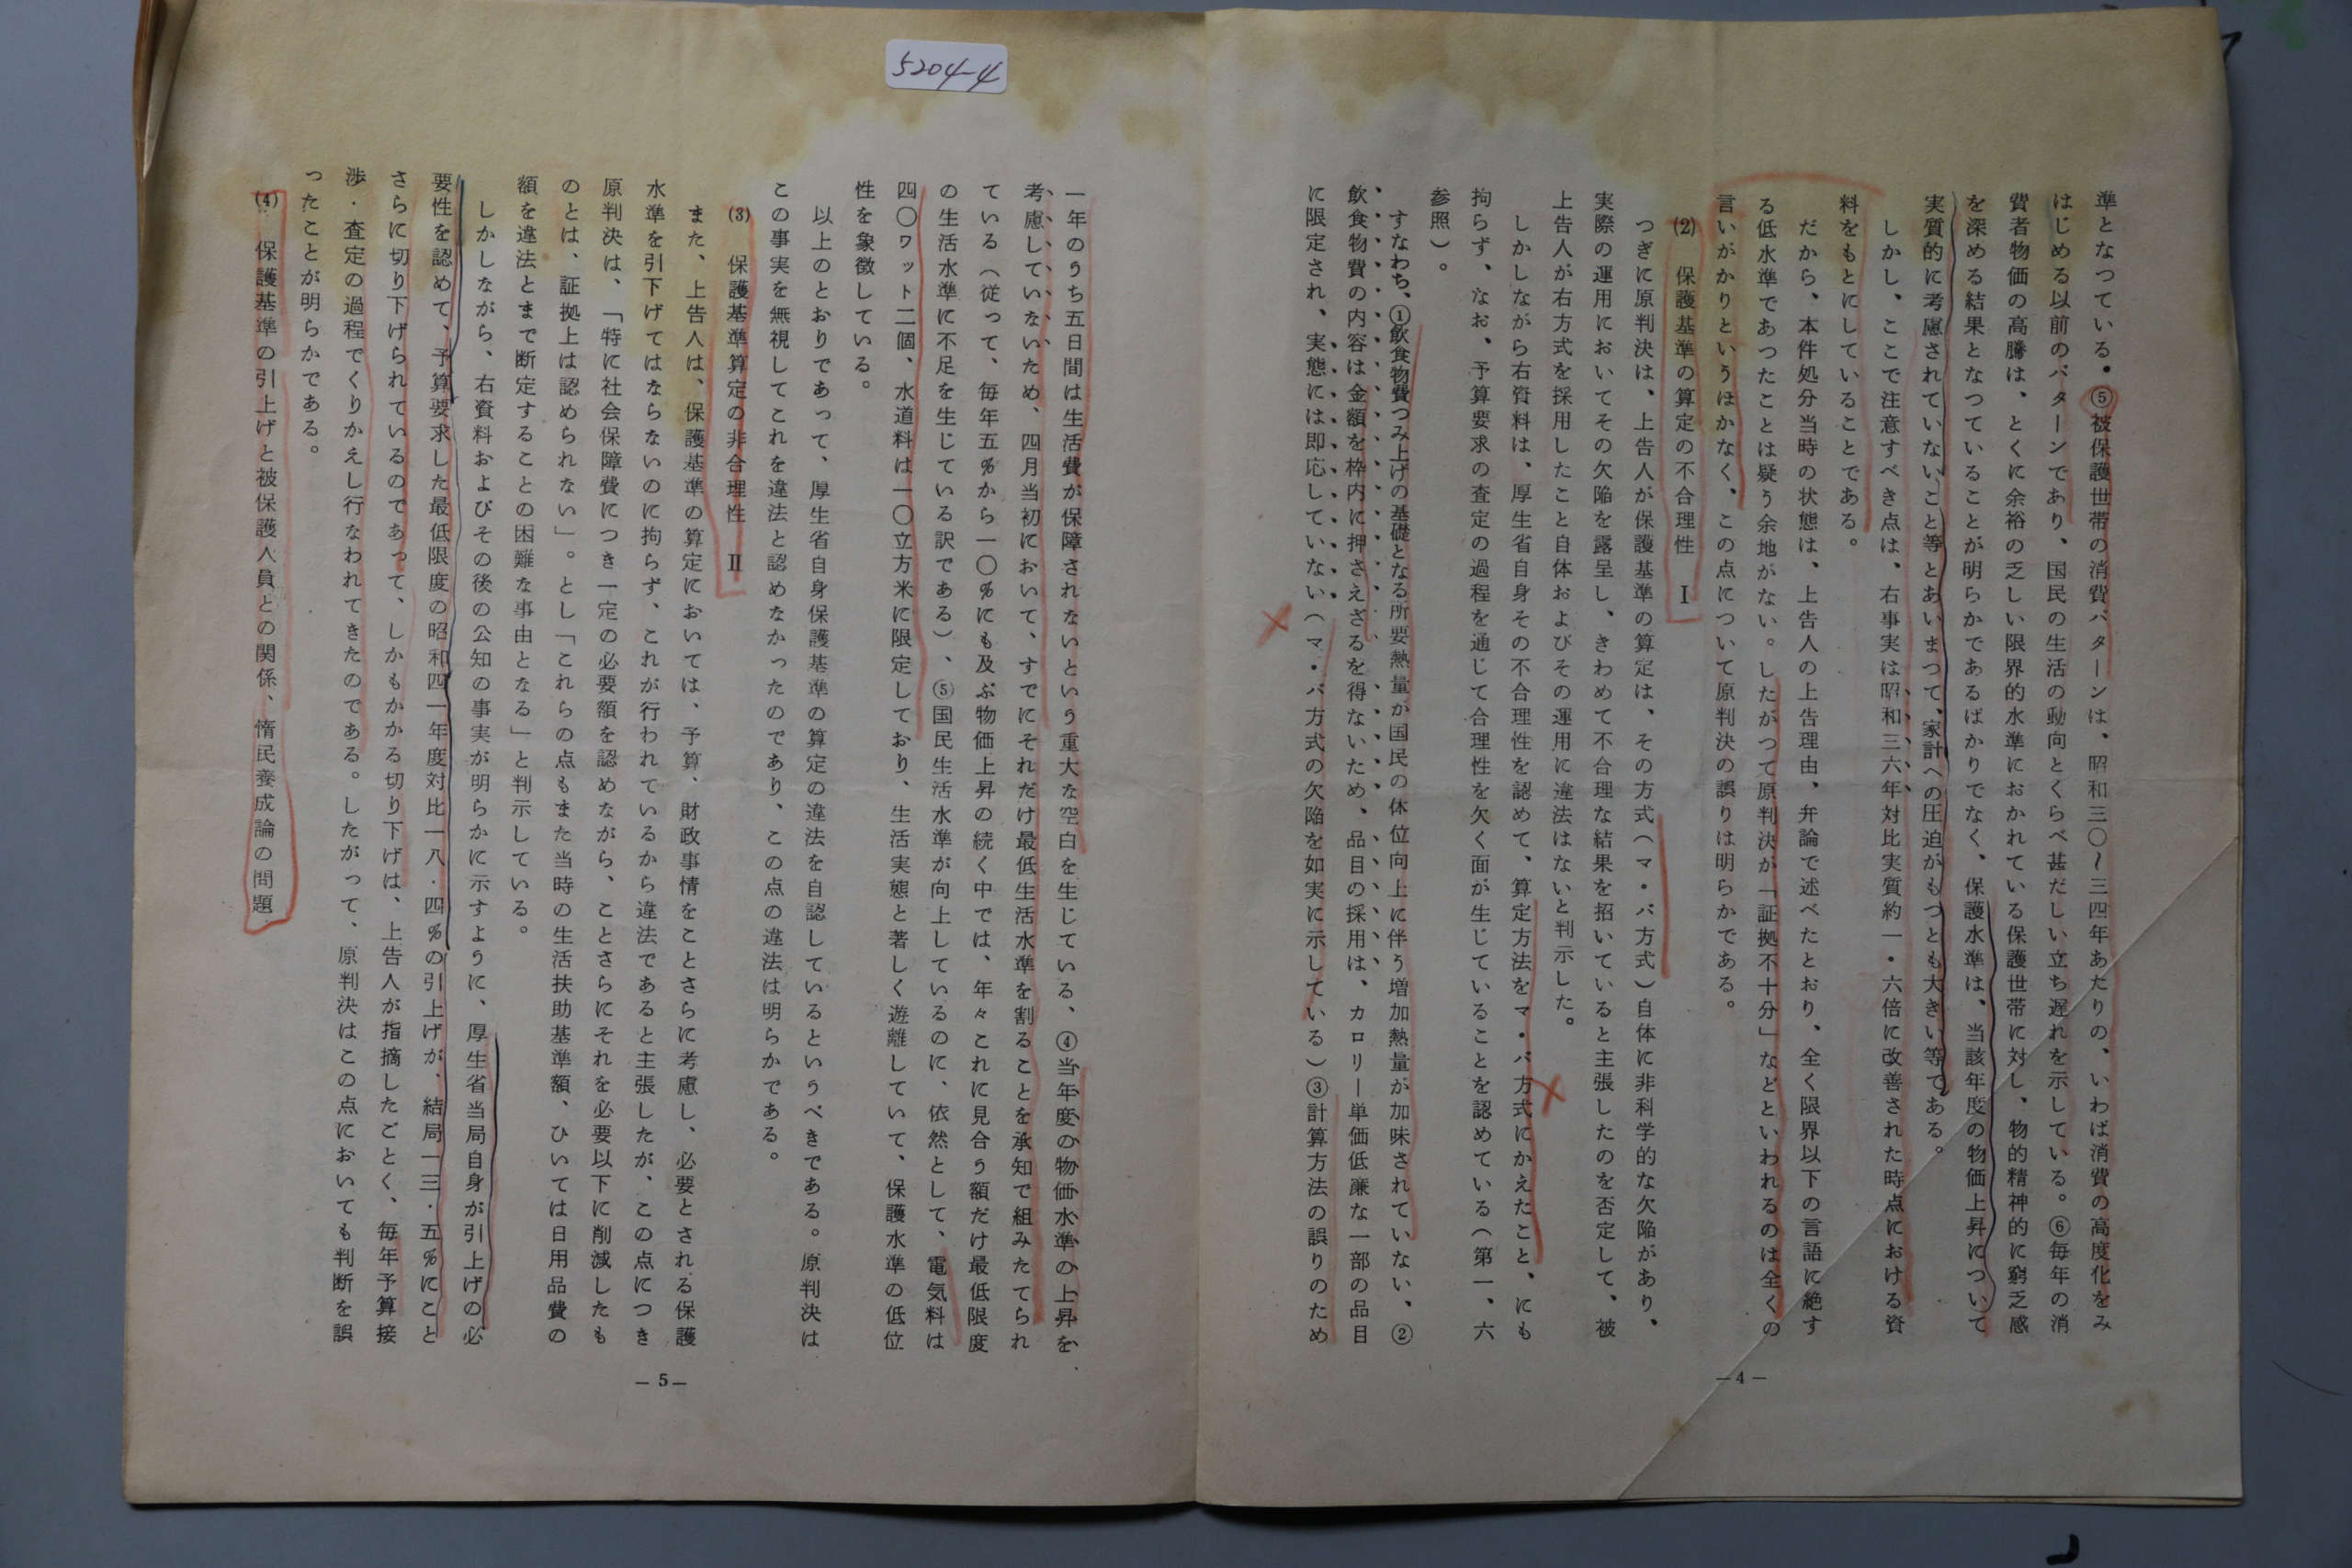 5204-4
準となつている。⑤被保護世帯の消費パターンは、昭和三〇〜三四年あたりの、いわば消費の高度化をみ
はじめる以前のパターンであり、国民の生活の動向とくらべ甚だしい立ち遅れを示している。⑥毎年の消
費者物価の高騰は、とくに余裕の乏しい限界的水準におかれている保護世帯に対し、物的精神的に窮乏感
を深める結果となつていることが明らかであるばかりでなく、保護水準は、当該年度の物価上昇について
実質的に考慮されていないこと等とあいまつて、家計への圧迫がもつとも大きい等である。
しかし、ここで注意すべき点は、右事実は昭和三六年対比実質約一・六倍に改善された時点における資
料をもとにしていることである。
だから、本件処分当時の状態は、上告人の上告理由、弁論で述べたとおり、全く限界以下の言語に絶す
る低水準であつたことは疑う余地がない。したがつて原判決が「証拠不十分」などといわれるのは全くの
言いがかりというほかなく、この点について原判決の誤りは明らかである。
(2) 保護基準の算定の不合理性 Ⅰ
つぎに原判決は、上告人が保護基準の算定は、その方式（マ・バ方式）自体に非科学的な欠陥があり、
実際の運用においてその欠陥を露呈し、きわめて不合理な結果を招いていると主張したのを否定して、被
上告人が右方式を採用したこと自体およびその運用に違法はないと判示した。
しかしながら右資料は、厚生省自身その不合理性を認めて、算定方法をマ・バ方式にかえたこと、にも
拘らず、なお、予算要求の査定の過程を通じて合理性を欠く面が生じていることを認めている（第一、六
参照）。
すなわち、①飲食物費つみ上げの基礎となる所要熱量が国民の体位向上に伴う増加熱量が加味されていない、②
飲食物費の内容は金額を枠内に押さえざるを得ないため、品目の採用は、カロリー単価低廉な一部の品目
に限定され、実態には即応していない（マ・バ方式の欠陥を如実に示している）③計算方法の誤りのため
— 4 —
一年のうち五日間は生活費が保障されないという重大な空白を生じている、④当年度の物価水準の上昇を
考慮していないため、四月当初において、すでにそれだけ最低生活水準を割ることを承知で組みたてられ
ている（従って、毎年五％から一〇％にも及ぶ物価上昇の続く中では、年々これに見合う額だけ最低限度
の生活水準に不足を生じている訳である）、⑤国民生活水準が向上しているのに、依然として、電気料は
四〇ワット二個、水道料は一〇立方米に限定しており、生活実態と著しく遊離していて、保護水準の低位
性を象徴している。
以上のとおりであって、厚生省自身保護基準の算定の違法を自認しているというべきである。原判決は
この事実を無視してこれを違法と認めなかったのであり、この点の違法は明らかである。
(3) 保護基準算定の非合理性 Ⅱ
また、上告人は、保護基準の算定においては、予算、財政事情をことさらに考慮し、必要とされる保護
水準を引下げてはならないのに拘らず、これが行われているから違法であると主張したが、この点につき
原判決は、「特に社会保障費につき一定の必要額を認めながら、ことさらにそれを必要以下に削減したも
のとは、証拠上は認められない」。とし「これらの点もまた当時の生活扶助基準額、ひいては日用品費の
額を違法とまで断定することの困難な事由となる」と判示している。
しかしながら、右資料およびその後の公知の事実が明らかに示すように、厚生省当局自身が引上げの必
要性を認めて、予算要求した最低限度の昭和四一年度対比一八・四％の引上げが、結局一三・五％にこと
さらに切り下げられているのであって、しかもかかる切り下げは、上告人が指摘したごとく、毎年予算接
渉・査定の過程でくりかえし行なわれてきたのである。したがって、原判決はこの点においても判断を誤
ったことが明らかである。
(4) 保護基準の引上げと被保護人員との関係、惰民養成論の問題
— 5 —